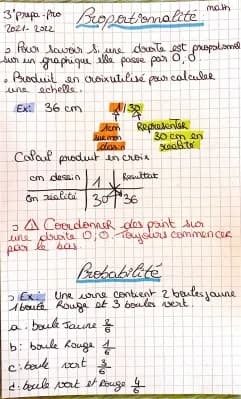 3° prépa-pro
2021-2022
math
Proportionnalité
→ Pour savoir si une droite est proportionnel
sur un graphique elle passe par 0,0.
• Produit en croix utilisé pour calculer
une échelle.
Ex: 36 cm 1/30
1cm sur mon dessin
Représenter 30 cm en réalité
Calcul produit en croix
cm dessin 1 Résultat
cm réalité 30 36
→ ⚠ Coordonner des point sur
une droite 0;0. Toujours commencer
par le bas.
Probabilité
→ Ex: Une urne contient 2 boules jaune
1 boule Rouge et 3 boules vert.
a: boule Jaune 2/6
b: boule Rouge 1/6
c: boule vert 3/6
d: boule vert et Rouge 4/6